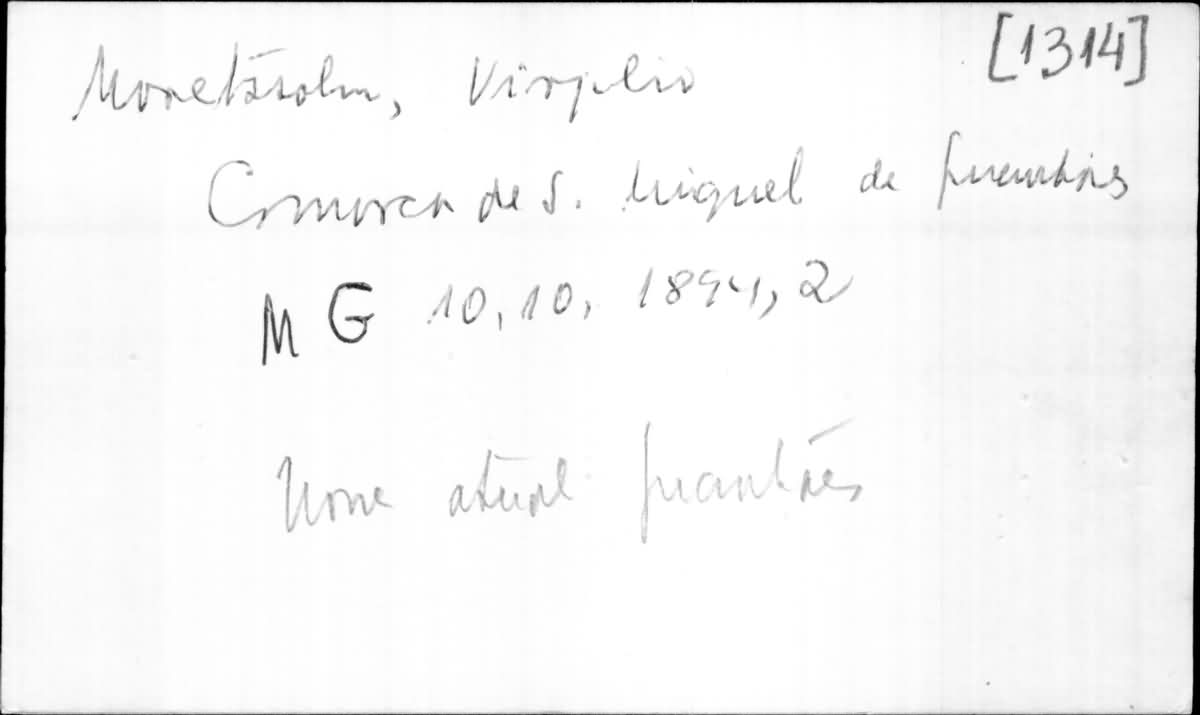 [1314]
Moretzsohn, Virgilio
Comarca de S. Miguel de Guanhães
MG 10,10, 1894, 2
Nome atual Guanhães